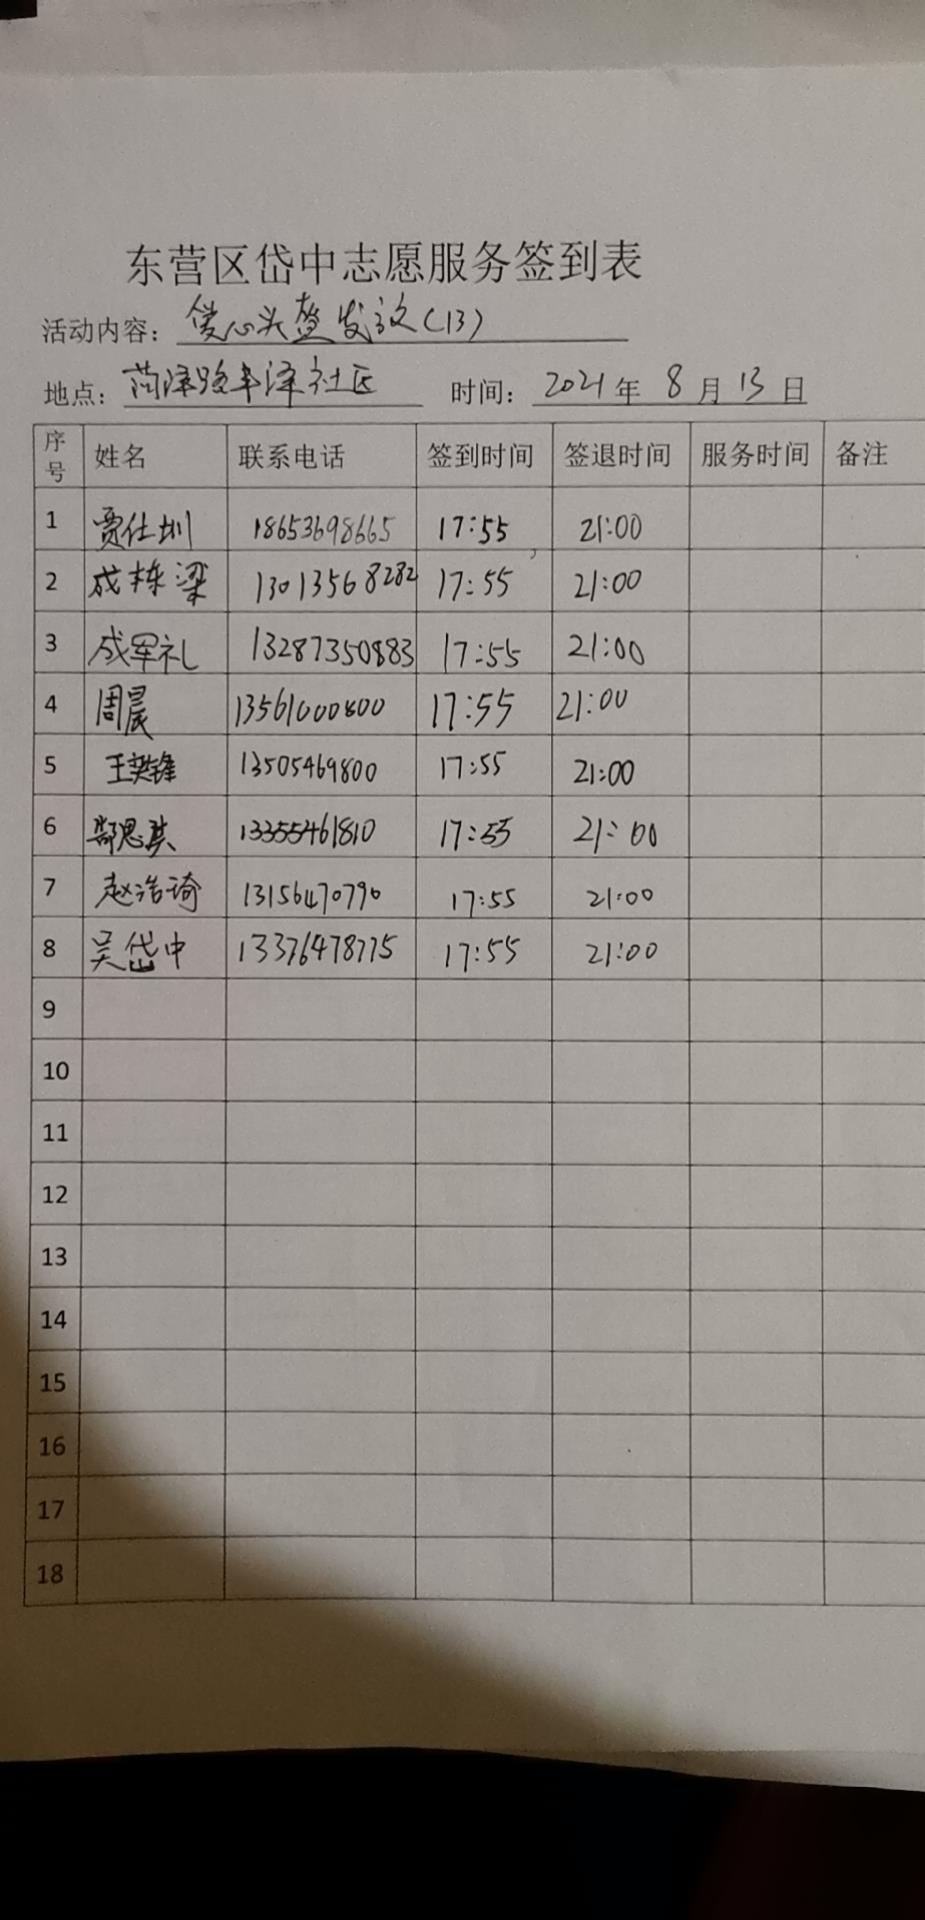 东营区岱中志愿服务签到表
活动内容：爱心头盔发放（13）
地点：菏泽路丰泽社区 时间：2021年 8月 13日
序号 姓名 联系电话 签到时间 签退时间 服务时间 备注
1 贾仕圳 18653698665 17:55 21:00
2 成栋梁 13013568282 17:55 21:00
3 成军礼 13287350883 17:55 21:00
4 周晨 13561000800 17:55 21:00
5 王英锋 13505469800 17:55 21:00
6 13355461810 17:55 21:00
7 赵浩琦 13156470790 17:55 21:00
8 吴岱中 13376478775 17:55 21:00
9
10
11
12
13
14
15
16
17
18